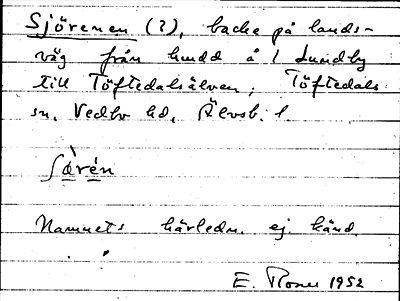 Sjörenen (?), backe på lands-
väg från hudd å l Lundby
till Töftedalsälven; Töftedals
sn, Vedbo hd, Älvsb. l.
ʃə̀rén
Namnets härledn. ej känd.
E. 1952